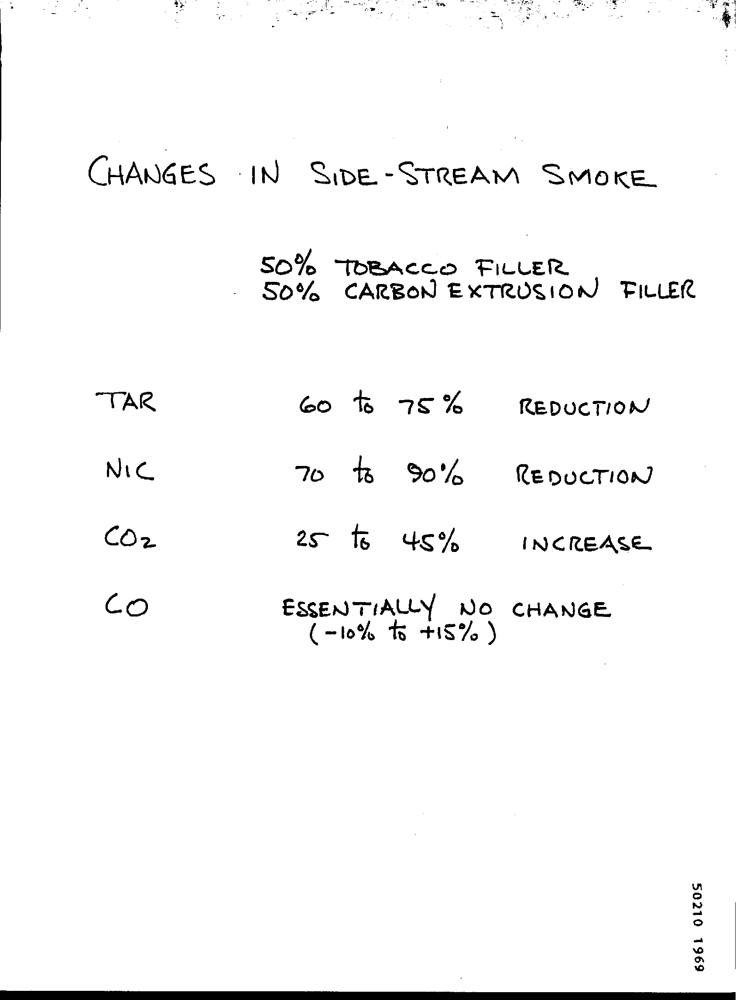 CHANGES IN SIDE-STREAM SMOKE
50% TOBACCO FILLER
50% CARBON EXTRUSION FILLER
TAR 60 to 75% REDUCTION
NIC 70 to 90% REDUCTION
CO2 25 to 45% INCREASE
CO ESSENTIALLY NO CHANGE
(-10% to +15%)
50210 1969